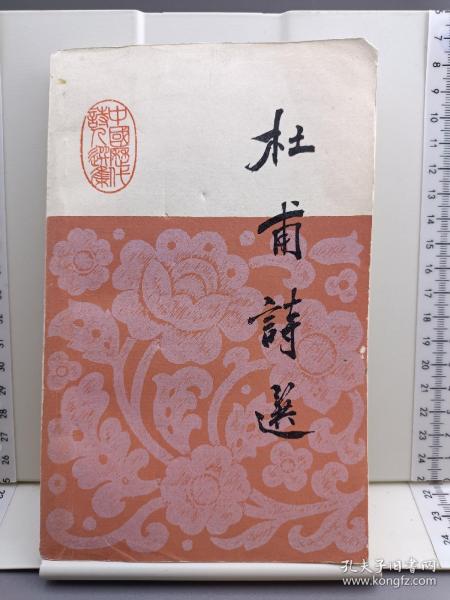 杜甫詩選
中國历代
詩人選集
孔夫子旧书网
www.kongfz.com